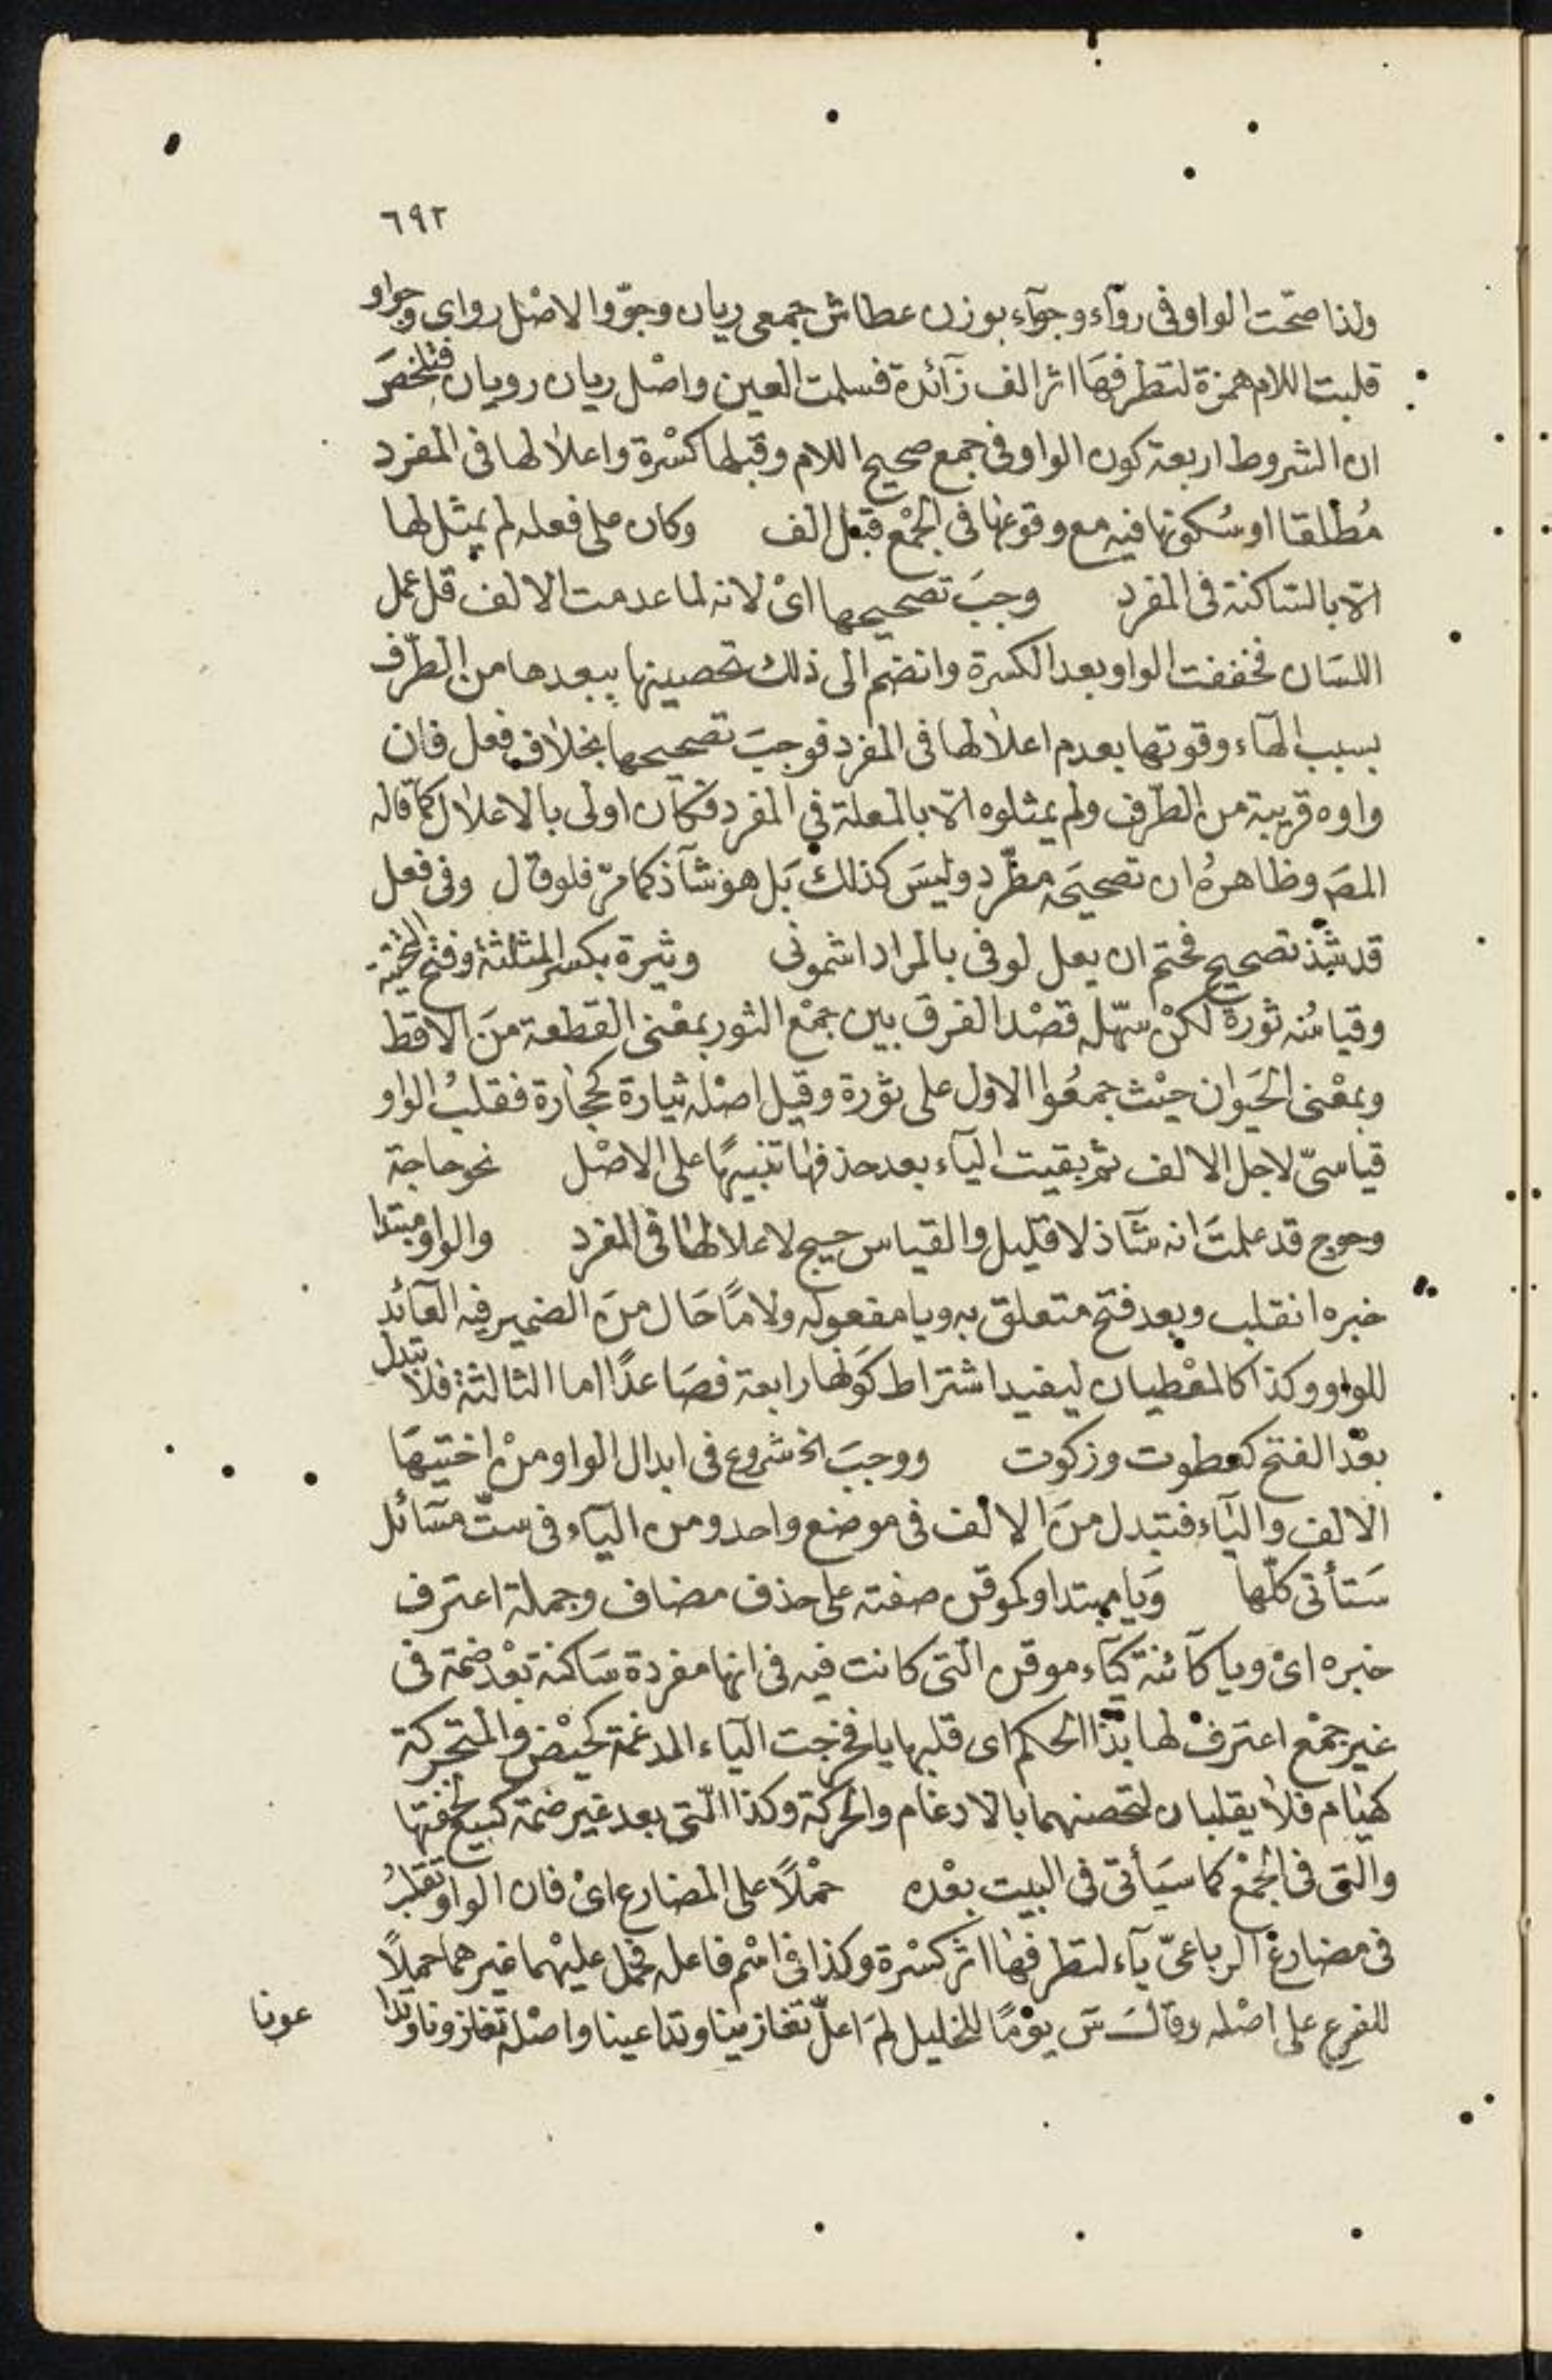 ٦٩٢
ولذا صحّت الواو فى روّآء وجوّآء بوزن عطاش جمعى ريان وجوّ والاصْل رواى وجواو
قلبت اللام همزة لتطرفهَا اثر الف زآئدة فسلمت العين واصْل ريان رويان فتلخصَ
ان الشروط اربعة كون الواو فى جمع صحيح اللام وقبلها كسْرة واعلالها فى المفرد
مُطلقا او سُكونها فيه مع وقوعها فى الجمْع قبْل الف وكان على فعله لم يمثل لها
الّا بالسّاكنة فى المفرد وجبَ تصحيحها اىْ لانه لما عدمت الالف قل عمل
اللسَان فخففت الواو بعد الكسرة وانضم الى ذلك تحصينها ببعدها من الطرّف
بسبب الهآء وقوتها بعدم اعلالها فى المفرد فوجبَ تصحيحها بخلاف فعل فان
واوه قريبة من الطرّف ولم يمثلوه الّا بالمعلة فى المفرد فكان اولى بالاعلال كما قاله
المصَ وظاهرهُ ان تصحيحَه مطّرد وليسَ كذلك بَل هو شآذ كما مرّ فلو قال وفى فعل
قد شذ تصحيح فحتم ان يعل لوفى بالمراد اشمونى وثيرة بكسر المثلثة وفتح التحتية
وقياسُه ثورة لكنْ سهّله قصْد الفرق بين جمْع الثور بمعْنى القطعة منَ الاقط
وبمعْنى الحَيوان حيْث جمعُوا الاول على ثوَرة وقيل اصْله ثيارة كحجَارة فقلبُ الواو
قياسىّ لاجل الالف ثم بقيت اليآء بعد حذفهَا تنبيهًا على الاصْل نحو حاجة
وحوج قد علمتَ انه شآذ لا قليل والقياس حيج لاعلالها فى المفرد والواو مبتدا
خبره انقلب وبعد فتح متعلق به ويا مفعوله ولامًا حَال منَ الضمير فيه العآئد
للواو وكذا كالمعْطيان ليفيد اشتراط كونهَا رابعة فصَاعدًا اما الثالثة فلا تبدل
بعْد الفتح كعطوت وزكوت ووجبَ الخ شروع فى ابدال الواو منْ اختيهَا
الالف واليَاء فتبدل منَ الالف فى موضع واحد ومن اليآء فى ستّ مسَائل
سَتأتى كلّها وَيا مبتدا وكموقن صفته على حذف مضاف وجملة اعترف
خبره اىْ ويا كآئنة كيَآء موقن التى كانت فيه فى انها مفردة سَاكنة بعْد ضمة فى
غير جمْع اعترفْ لها بذا الحكم اى قلبها يا فخرجت اليآء المدغمة كحيّض والمتحركة
كهيَام فلا يقلبان لتحصنهما بالادغام والحركة وكذا التى بعد غير ضمة كبيع لخفتها
والتى فى الجمْع كما سيَأتى فى البيت بعْده حمْلًا على المضارع اىْ فان الواو تقلبُ
فى مضارعْ الرباعىّ يآء لتطرفهَا اثر كسْرة وكذا فى اسْم فاعله فحمل عليْهما غيرهما حملًا
للفرع على اصْله وقالَ سَ يوْمًا للخليل لمَ اعلّ تغازينا وتداعينا واصْله تغازونا وتدا
عونا